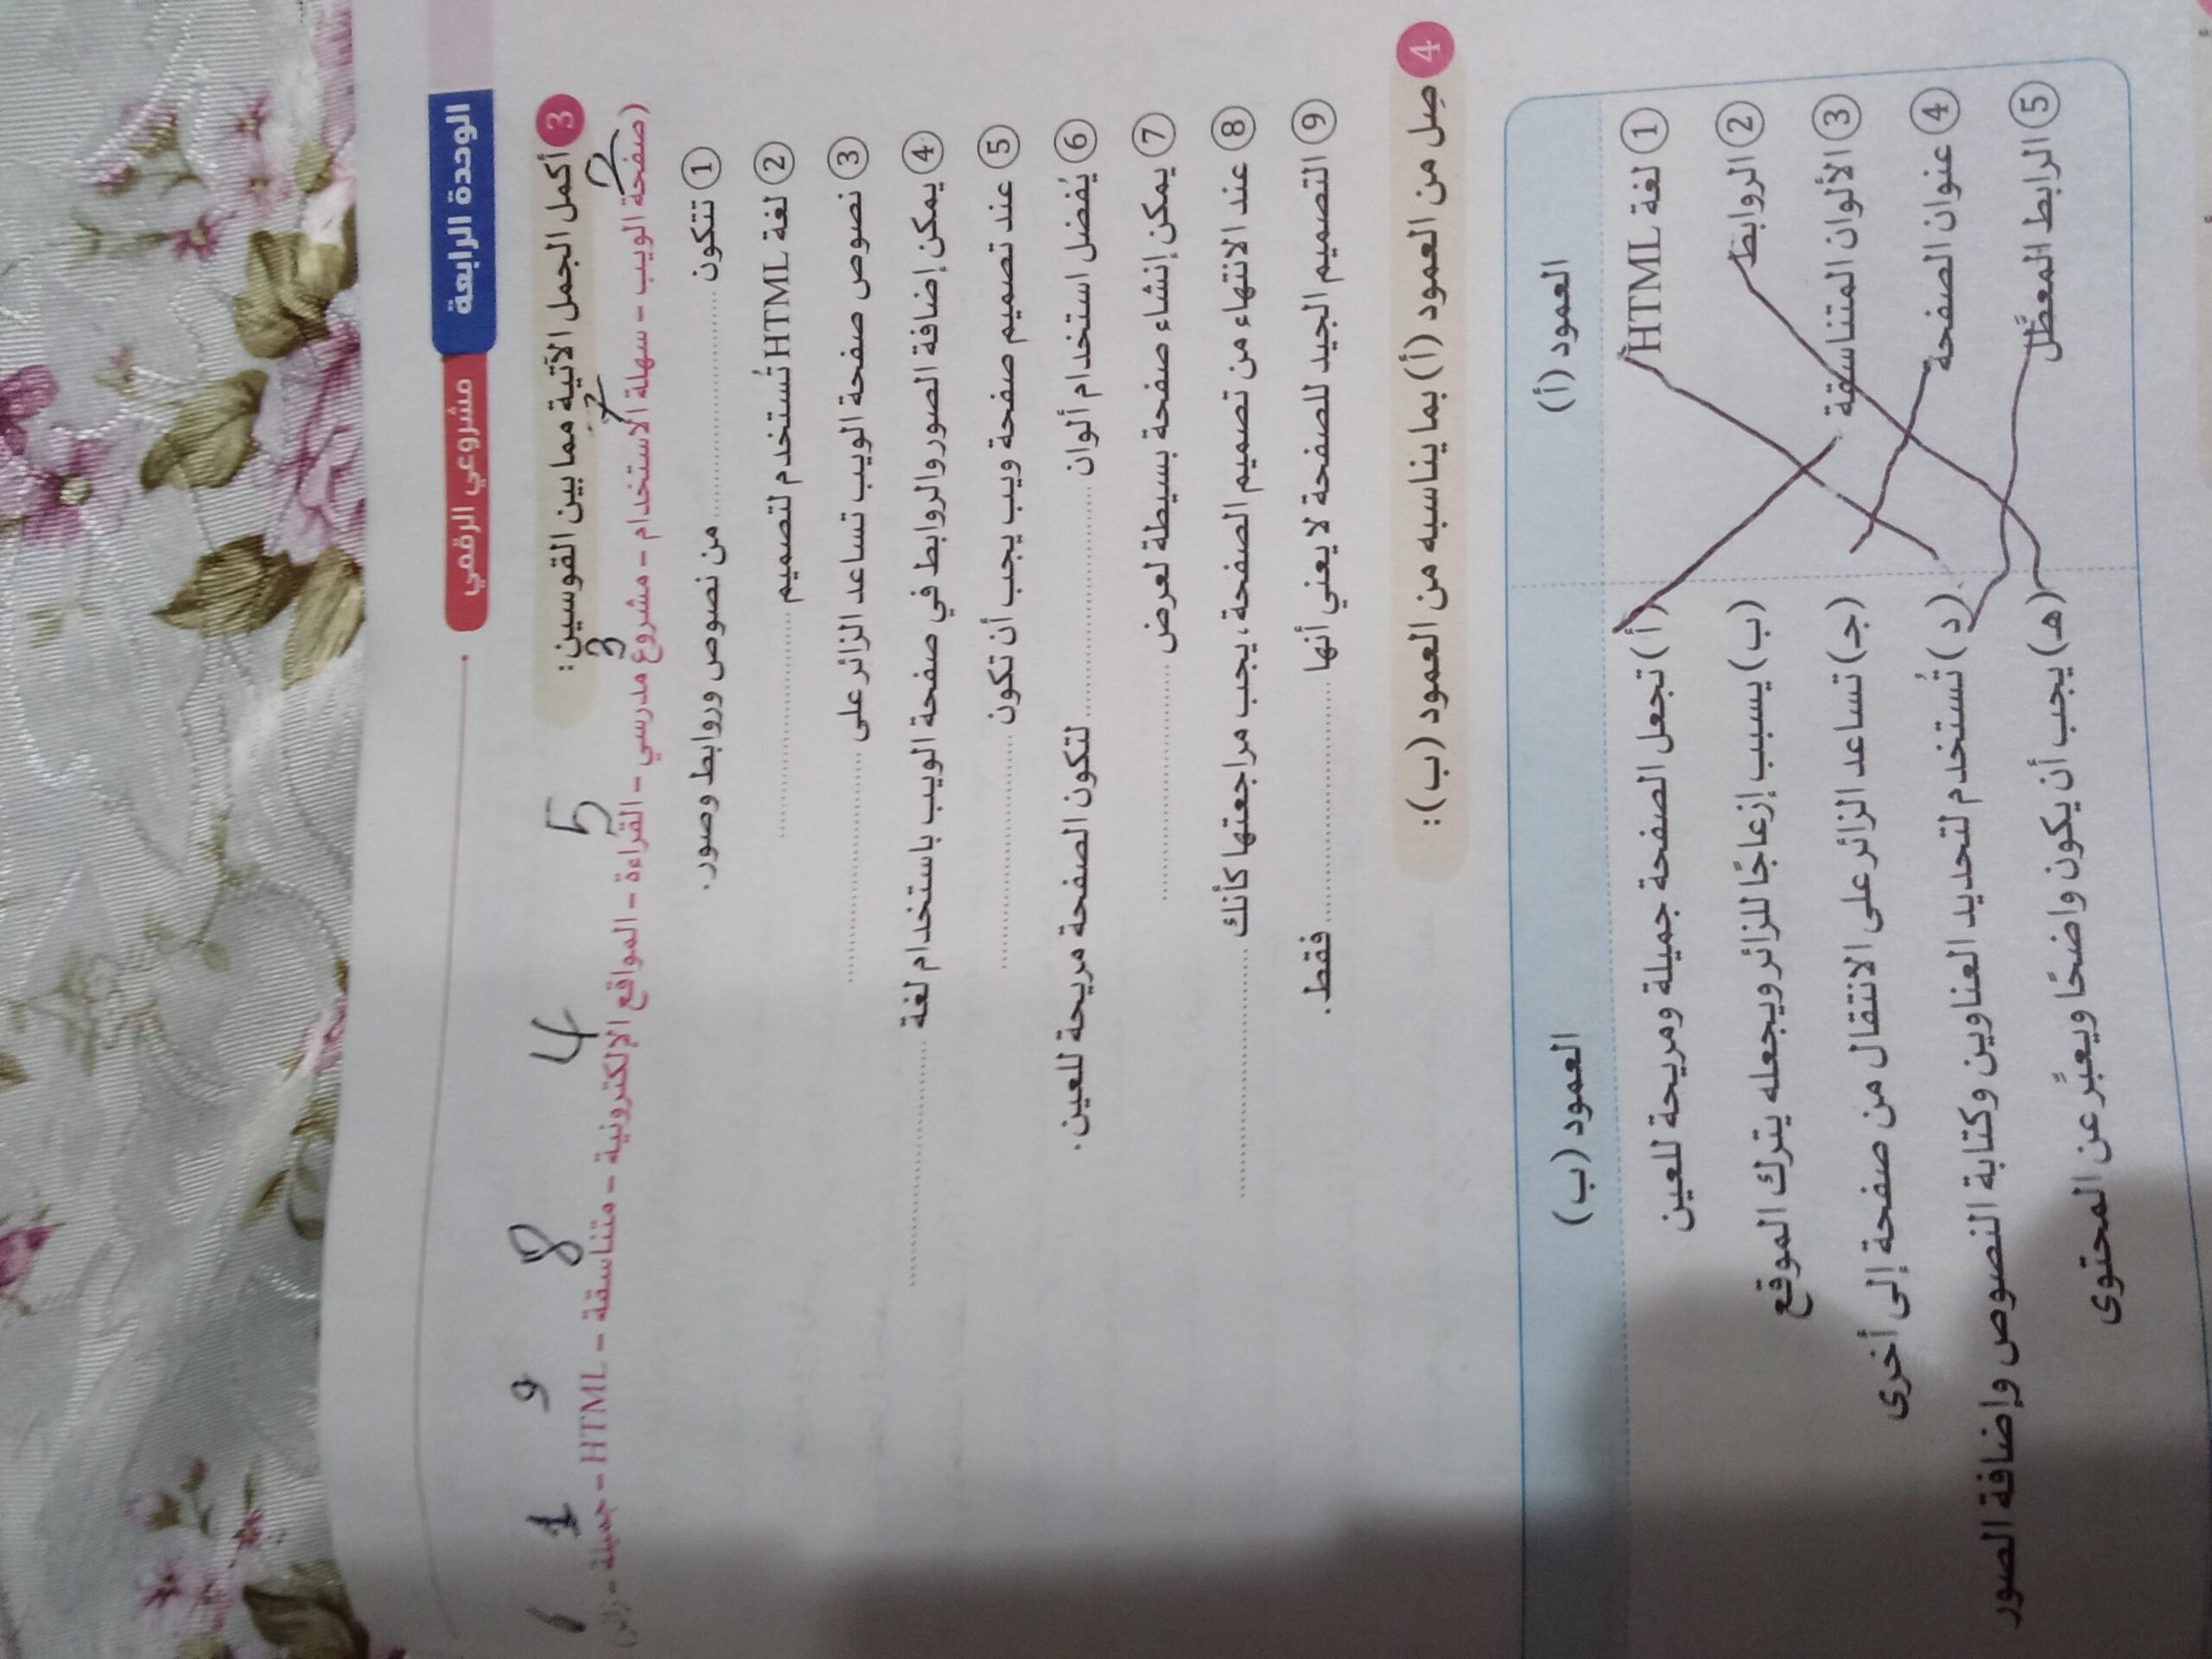 مشروعي الرقمي الوحدة الرابعة
3 أكمل الجمل الآتية مما بين القوسين:
2 7 3 5 4 8 9 1
(صفحة الويب - سهلة الاستخدام - مشروع مدرسي - القراءة - المواقع الإلكترونية - متناسقة - HTML - جميلة - زائر)
1 تتكون .................... من نصوص وروابط وصور.
2 لغة HTML تُستخدم لتصميم ....................
3 نصوص صفحة الويب تساعد الزائر على ....................
4 يمكن إضافة الصور والروابط في صفحة الويب باستخدام لغة ....................
5 عند تصميم صفحة ويب يجب أن تكون ....................
6 يُفضل استخدام ألوان .................... لتكون الصفحة مريحة للعين.
7 يمكن إنشاء صفحة بسيطة لعرض ....................
8 عند الانتهاء من تصميم الصفحة، يجب مراجعتها كأنك ....................
9 التصميم الجيد للصفحة لا يعني أنها .................... فقط.
4 صِل من العمود (أ) بما يناسبه من العمود (ب):
العمود (أ) العمود (ب)
1 لغة HTML (أ) تجعل الصفحة جميلة ومريحة للعين
2 الروابط (ب) يسبب إزعاجًا للزائر ويجعله يترك الموقع
3 الألوان المتناسقة (جـ) تساعد الزائر على الانتقال من صفحة إلى أخرى
4 عنوان الصفحة (د) تُستخدم لتحديد العناوين وكتابة النصوص وإضافة الصور
5 الرابط المعطَّل (هـ) يجب أن يكون واضحًا ويعبِّر عن المحتوى